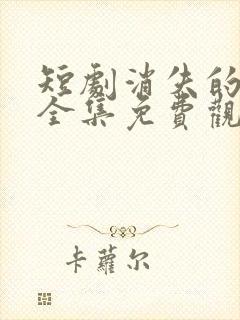 短劇消失的
全集免費觀
卡蘿尔